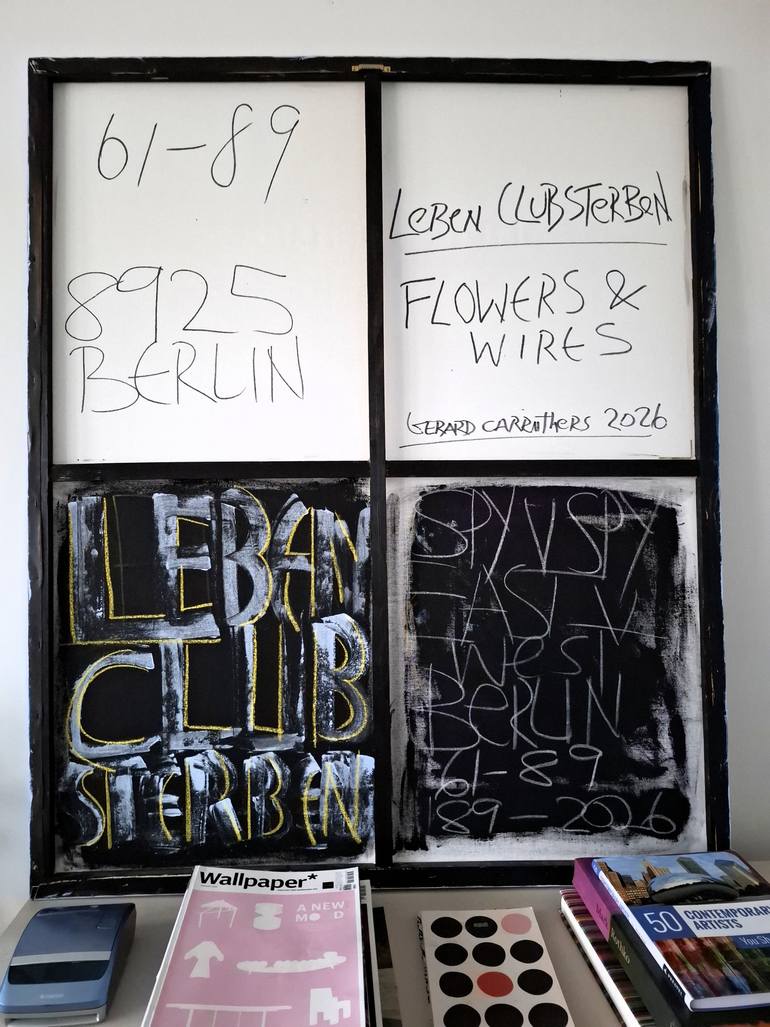 61-89
8925
BERLIN
LEBEN CLUBSTERBEN
FLOWERS &
WIRES
GERARD CARRUTHERS 2026
LEBAN
CLUB
STERBEN
SPY V SPY
EAST V
WEST
BERLIN
61-89
89-2026
Wallpaper*
A NEW
MOOD
50 CONTEMPORARY
ARTISTS
You Sh